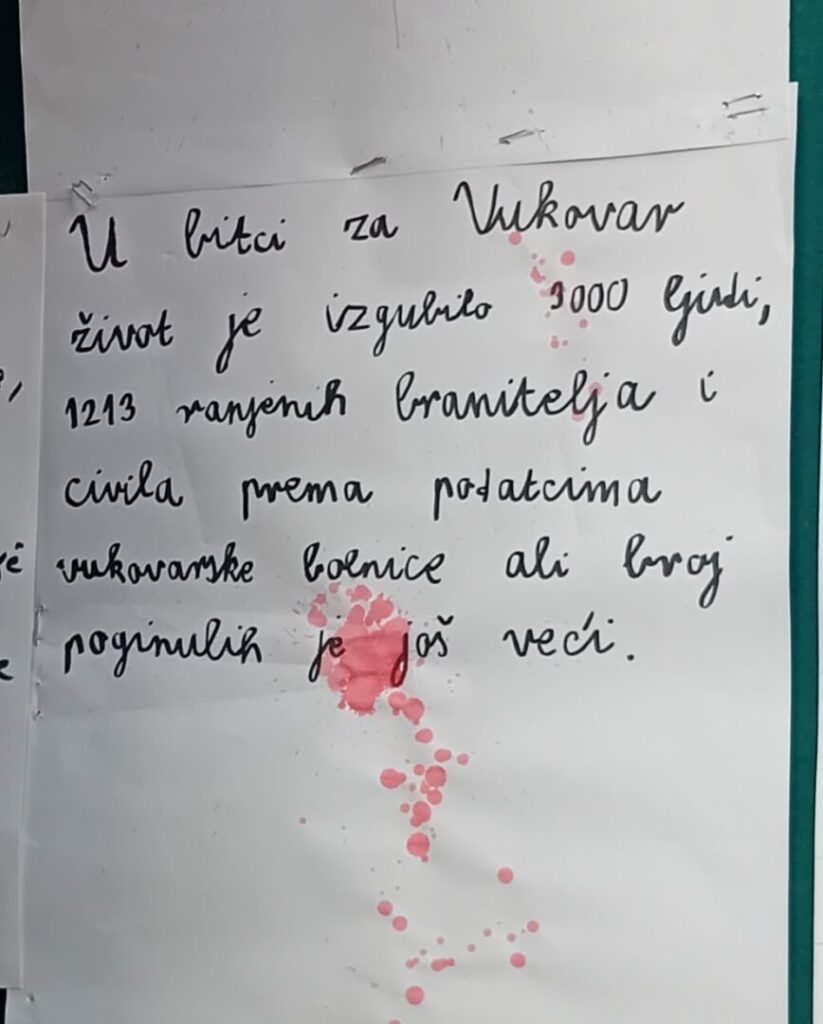 U bitci za Vukovar
život je izgubilo 3000 ljudi,
1213 ranjenih branitelja i
civila prema podatcima
vukovarske bolnice ali broj
poginulih je još veći.